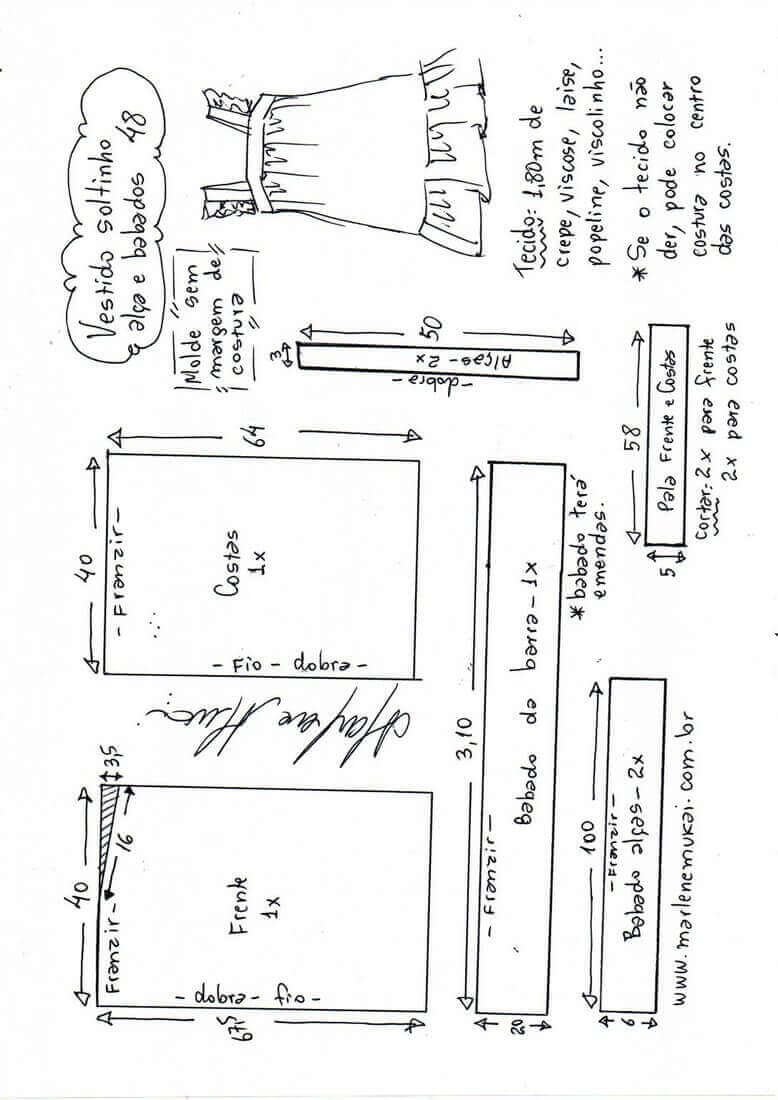 Vestido soltinho
alça e babados 48
"Molde sem"
margem de
"costura"
Tecido: 1,80m de
crepe, viscose, laise,
popeline, viscolinho...
* Se o tecido não
der, pode colocar
costura no centro
das costas.
3
-dobra-
Alças-2x
50
40
64
-Franzir-
Costas
1x
-Fio-dobra-
40
3,5
16
67,5
Franzir-
Frente
1x
-dobra-fio-
3,10
20
-Franzir-
Babado da barra-1x
* babado terá
emendas.
58
5
Pala Frente e Costas
cortar: 2x para frente
2x para costas
100
6
-Franzir-
Babado alças-2x
www.marlenemukai.com.br